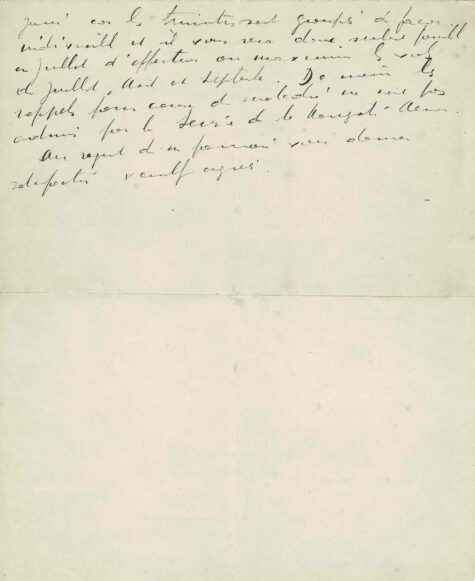 juin car les trimestres sont groupés de façon
indivisible et il vous sera donc seulement possible
en juillet d'effectuer au maximum les vols
de juillet, Août et Septembre. De même les
rappels pour cause de maladie ne sont pas
admis par le Service de la
Au regret de ne pouvoir vous donner
satisfaction veuillez agréer.